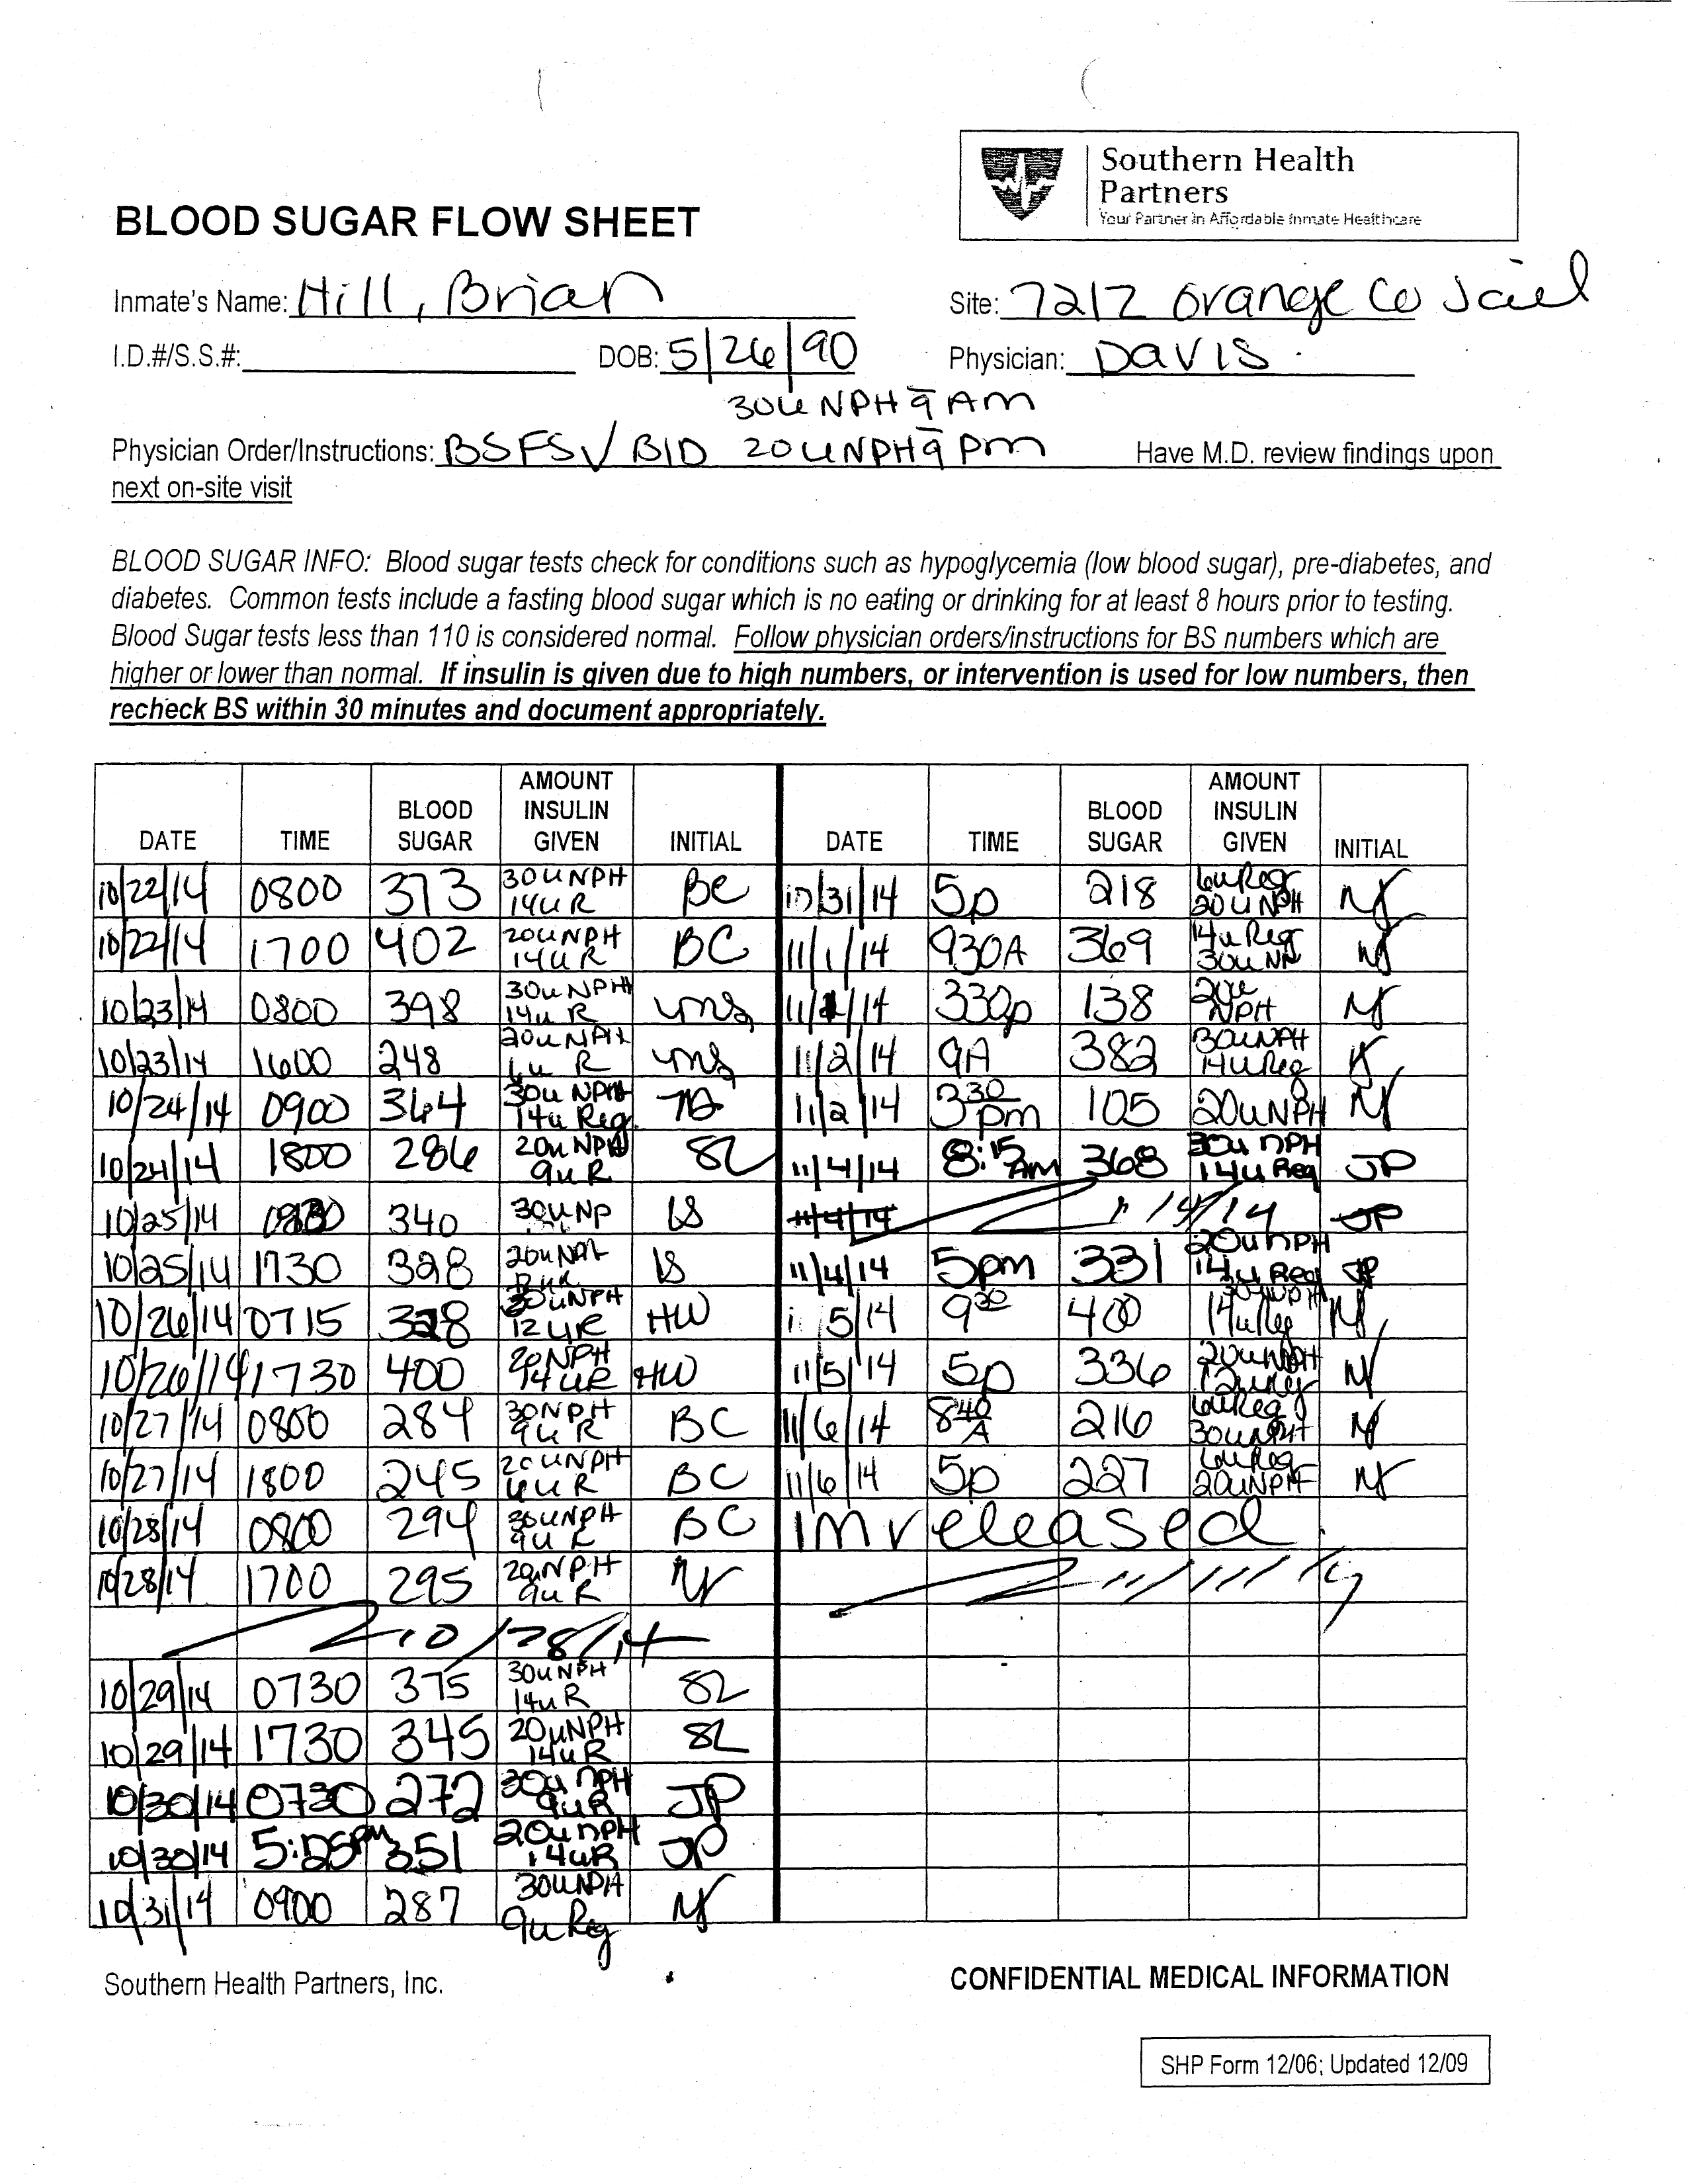 Southern Health
Partners
Your Partner in Affordable Inmate Healthcare
BLOOD SUGAR FLOW SHEET
Inmate's Name: Hill, Brian Site: 7217 Orange Co Jail
I.D.#/S.S.#: DOB: 5/26/90 Physician: Davis
30u NPH q AM
Physician Order/Instructions: BSFS √ BID 20u NPH q pm Have M.D. review findings upon
next on-site visit
BLOOD SUGAR INFO: Blood sugar tests check for conditions such as hypoglycemia (low blood sugar), pre-diabetes, and
diabetes. Common tests include a fasting blood sugar which is no eating or drinking for at least 8 hours prior to testing.
Blood Sugar tests less than 110 is considered normal. Follow physician orders/instructions for BS numbers which are
higher or lower than normal. If insulin is given due to high numbers, or intervention is used for low numbers, then
recheck BS within 30 minutes and document appropriately.
DATE TIME BLOOD SUGAR AMOUNT INSULIN GIVEN INITIAL DATE TIME BLOOD SUGAR AMOUNT INSULIN GIVEN INITIAL
10/22/14 0800 373 30u NPH 14u R BC 10/31/14 5p 218 6u Reg 20u NPH
10/22/14 1700 402 20u NPH 14u R BC 11/1/14 930A 369 14u Reg 30u NP
10/23/14 0800 398 30u NPH 14u R 11/1/14 330p 138 20u NPH
10/23/14 1600 248 20u NPH 6u R 11/2/14 9A 382 30u NPH 14u Reg
10/24/14 0900 364 30u NPH 14u Reg 11/2/14 330 pm 105 20u NPH
10/24/14 1800 286 20u NPH 9u R SL 11/4/14 8:15 AM 368 30u NPH 14u Reg JP
10/25/14 340 30u NP LS 11/4/14 11/4/14 JP
10/25/14 1730 328 20u NPH LS 11/4/14 5pm 331 20u NPH 14u Reg JP
10/26/14 0715 328 30u NPH 12u R HW 5/14 930 400 30u NPH 14u Reg
10/26/14 1730 400 20 NPH 14u R HW 11/5/14 5p 336 20u NPH 12u Reg
10/27/14 0800 284 30 NPH 9u R BC 11/6/14 840 A 216 6u Reg 30u NPH
10/27/14 1800 245 20u NPH 6u R BC 11/6/14 5p 227 6u Reg 20u NPH
10/28/14 0800 294 30u NPH 9u R BC IM released
10/28/14 1700 295 20u NPH 9u R 11/11/14
10/28/14
10/29/14 0730 375 30u NPH 14u R SL
10/29/14 1730 345 20u NPH 14u R SL
10/30/14 0730 272 30u NPH 9u R JP
10/30/14 5:25PM 351 20u NPH 14u R JP
10/31/14 0900 287 30u NPH 9u Reg
Southern Health Partners, Inc. CONFIDENTIAL MEDICAL INFORMATION
SHP Form 12/06; Updated 12/09